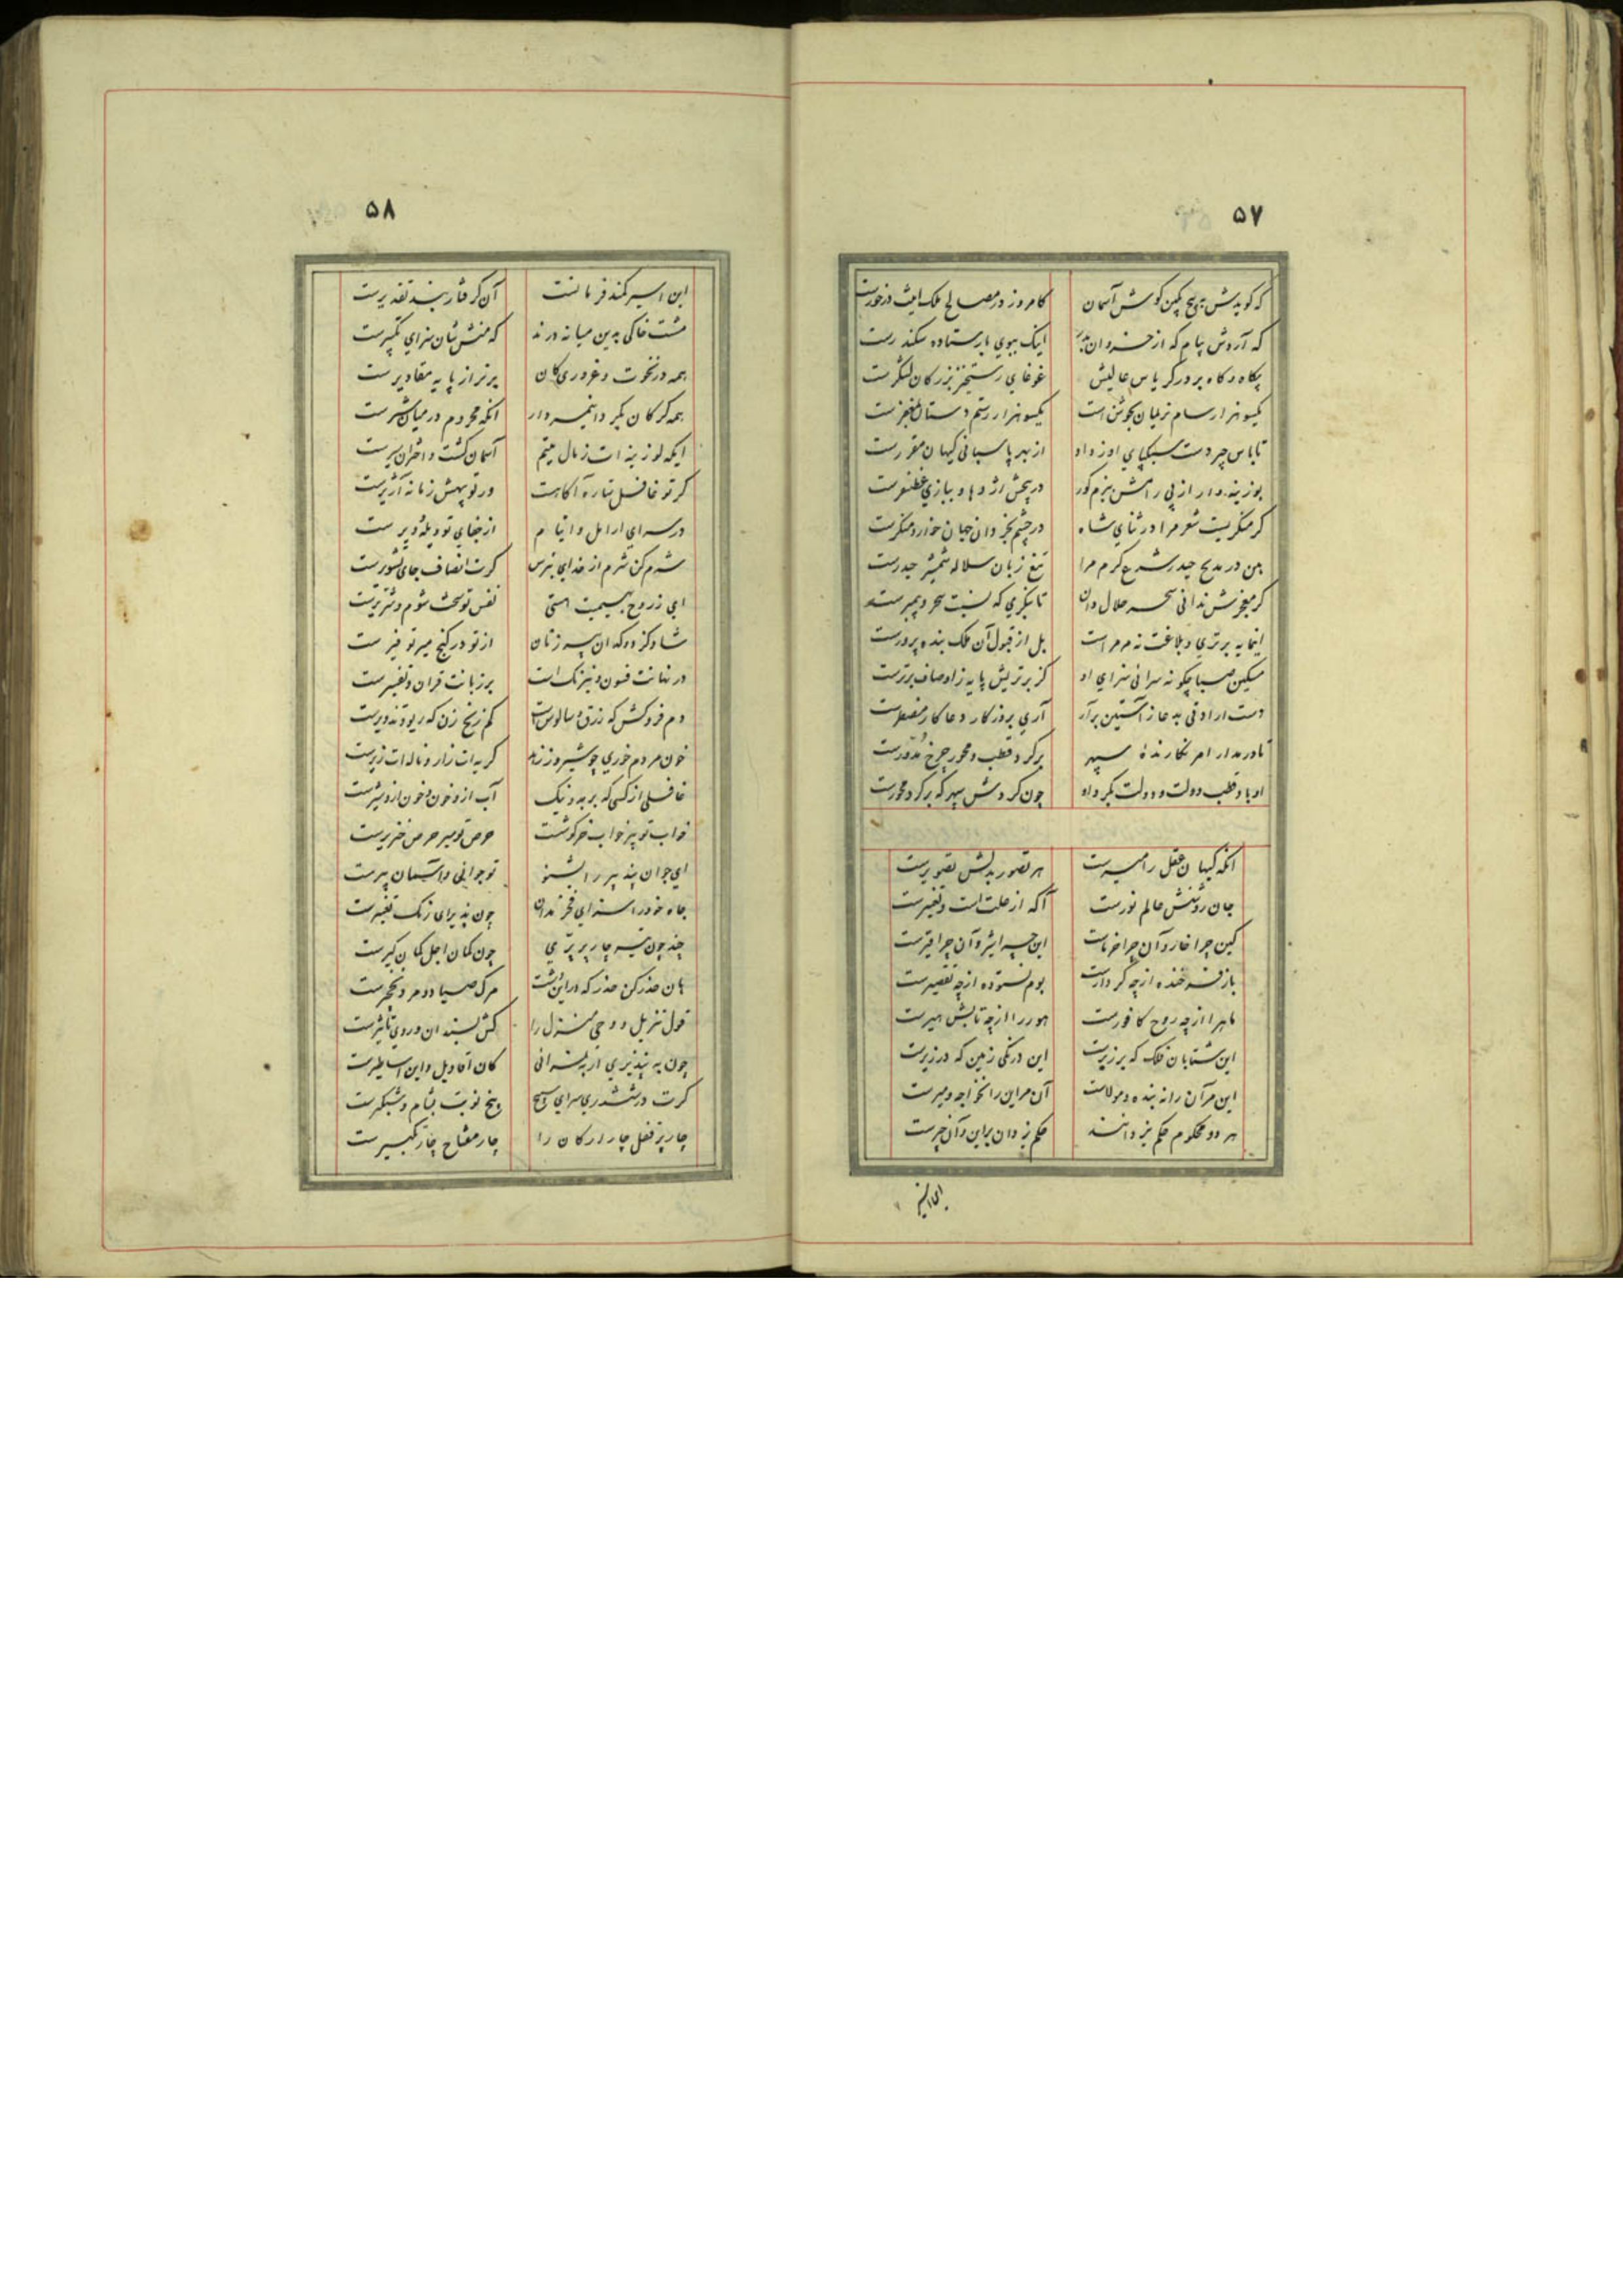 ۵۷
که گویدش بپیچ بکین گوش آسمان کامروز در مصالح ملک اینت درخورست
که آردش پیام که از خسروان اینک ببوی بار ستاده سکندرست
پکاه و کاه بر در کریاس عالیش غوغای رستخیز بزرگان لشگرست
یکسو هزار سام نریمان بجوشن است یکسو هزار رستم دستان بمغفرست
تا پاس چیر دست سبکپای او زداد از بهر پاسبانی کیهان مقررست
بوزینه وار از پی رامش ببزم کور در پیش اژدها و ببازی غضنفرست
گر منکریست شعر مرا در ثنای شاه در چشم بخردان جهان خوار و منکرست
بین در مدیح حیدر شرع کرم مرا تیغ زبان سلاله شمشیر حیدرست
گر معجزش ندانی سحر حلال دان تا بنگری که نسبت سحر و پیمبرست
اینمایه برتری و بلاغت نه مر مراست بل از قبول آن ملک بنده پرورست
مسکین صبا چگونه سرائی سزای او کز برتریش پایه ز اوصاف برترست
دست ارادتی بدعا ز آستین برآر آری بروزگار دعا کار مضطرست
تا در مدار امر نگارندهٔ سپهر بر گرد قطب و محور چرخ مدورست
او باد قطب دولت و دولت بگرد او چون گردش سپهر که بر گرد محورست
آنکه کیهان عقل را میرست هر تصور بدلش تصویرست
جان روشنش عالم نورست آگه از علت است و تغییرست
کین چرا خار و آن چرا خرماست این چسرا شیر و آن چرا قیرست
باز فرخنده از چه کردارست بوم نستوده از چه تقصیرست
ماه را از چه روح کافورست هور را از چه تابش هیرست
این شتابان فلک که بر زبرست این درنگی زمین که در زیرست
این مر آن را نه بنده و مولاست آن مر این را نخواجه و میرست
هر دو محکوم حکم یزدانند حکم یزدان بر این و آن چیرست
این اسیر
۵۸
این اسیر کمند فرمانست آن گرفتار بند تقدیرست
مشت خاکی بدین میانه درند که منش شان سزای تکبیرست
همه در نخوت و غروری کان برتر از پایه مقادیرست
همه گرگان بکر و دانیم دوار آنکه محروم در میان شیرست
ایکه لوزینه ات ز مال یتیم آسمان گشت و اختران سیرست
گر تو غافل ستاره آگاهست ور تو بیهش زمانه آژیرست
در سرای ارامل و ایتام از جفای تو ویله و ویرست
شرم کن شرم از خدای بترس گرت انصاف جای تشویرست
ای ز روح بهیمیت هستی نفس تو سخت شوم و شریرست
شاد کز دوکدان پیرزنان از تو در گنج میر توفیرست
در نهانت فسون و نیرنگ است بر زبانت قران و تفسیرست
دم فروکش که زرق و سالوس است کم زنخ زن که ریو و تزویرست
خون مردم خوری چو شیر و ز زهد گریه ات زار و ناله ات زیرست
غافلی از کسی که بر بد و نیک آب از و خون و خون از و شیرست
خواب تو بیز خواب خرگوشت حرص تو میر حرص خنزیرست
ای جوان پند پیر را بشنو تو جوانی و آسمان پیرست
جاه خود را سزای فخر مدان چون پذیرای رنگ تغییرست
چند چون تیر چار پر پری چون کمان اجل کمان گیرست
هان حذر کن حذر که در این دشت مرگ صیاد و مرد نخچیرست
قول تنزیل و وحی منزل را کش بسندان و روی تاثیرست
چون به نپذیری ار به نشرانی کان اقاویل و این اساطیرست
گرت در ششدری سرای سپنج و پنج نوبت بشام و شبگیرست
چار پر قفل چار ارکان را چار مفتاح چار تکبیرست